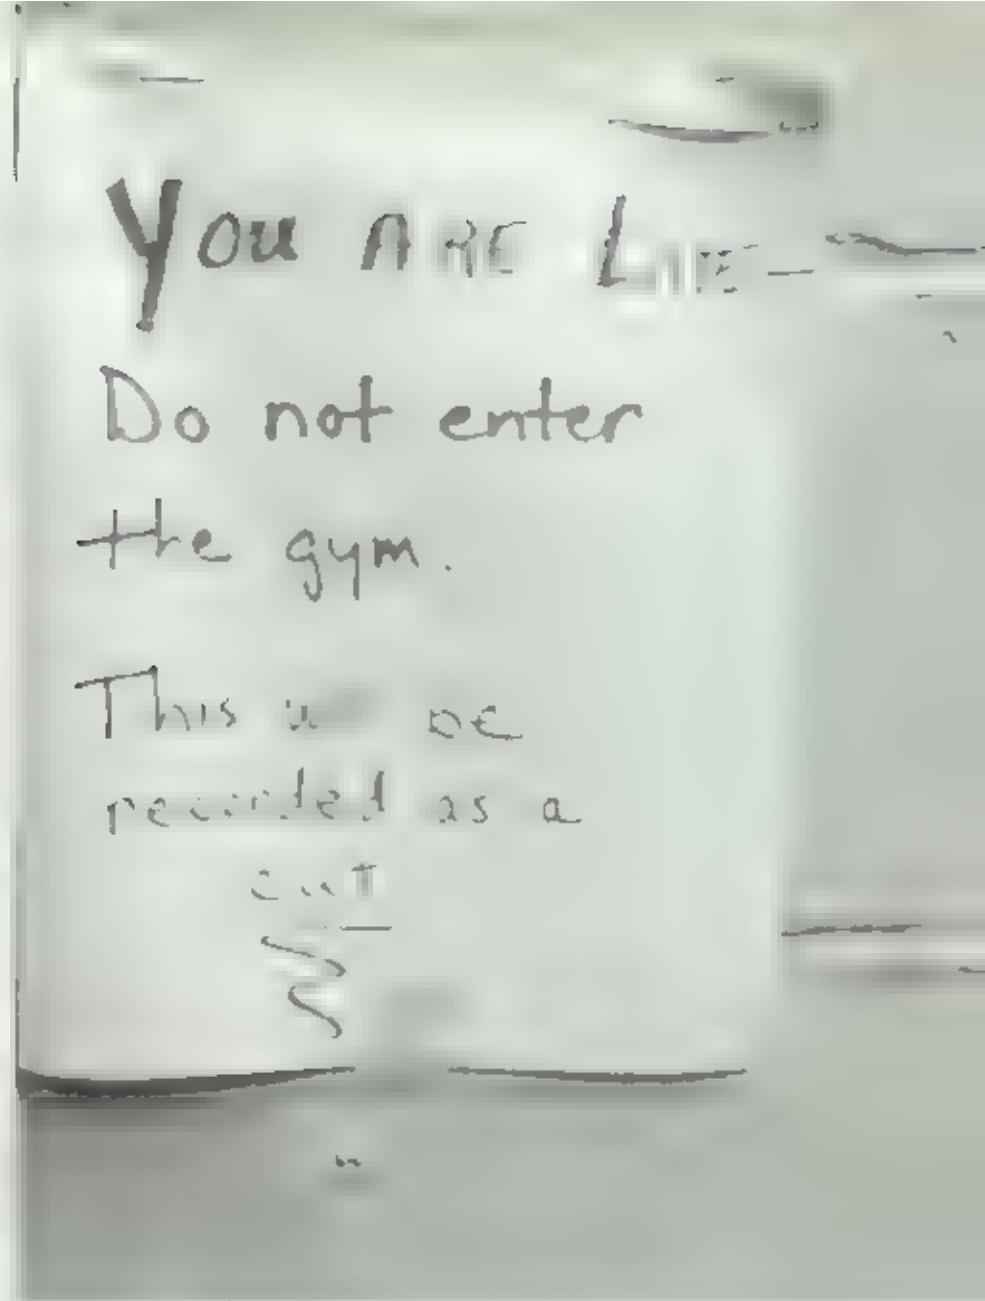 You ARE LATE
Do not enter
the gym.
This be
recorded as a
cut